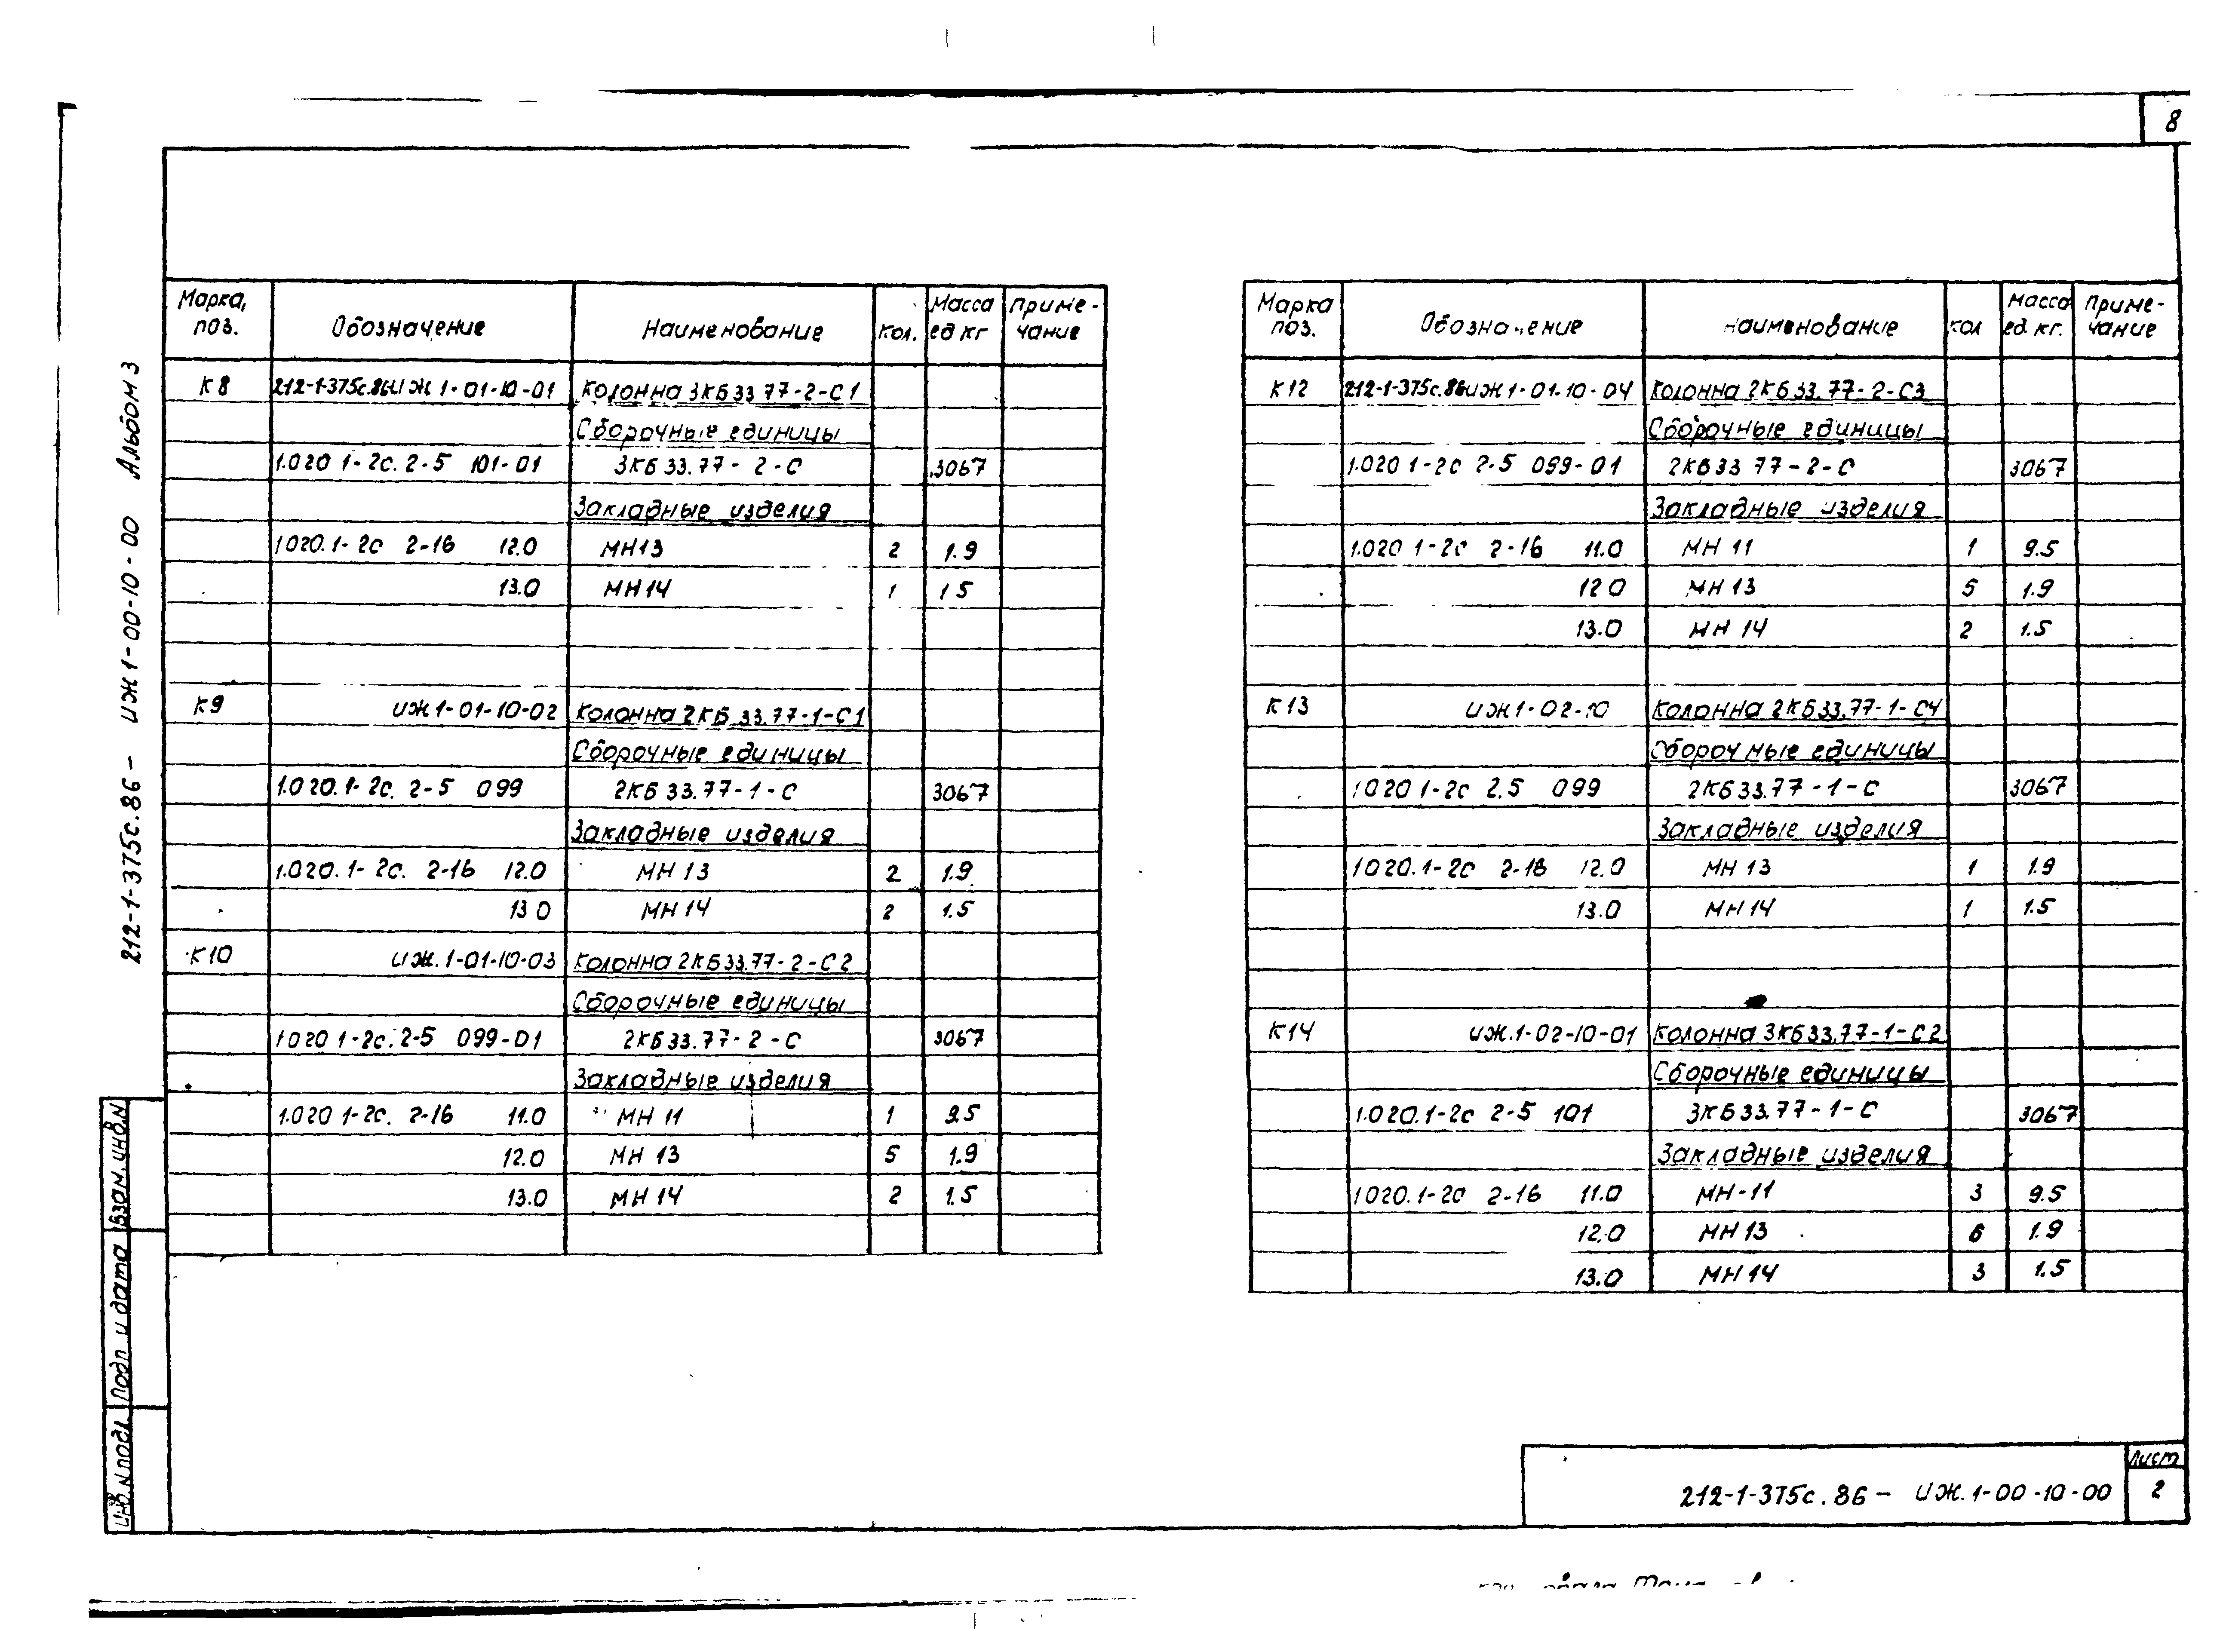 8
212-1-375с.86 - ИЖ1-00-10-00 Альбом 3
Марка, поз. Обозначение Наименование Кол. Масса ед кг Приме-чание
К8 212-1-375с.86ИЖ1-01-10-01 Колонна 3КБ33 77-2-С1
Сборочные единицы
1.020 1-2с. 2-5 101-01 3КБ33.77-2-С 3067
Закладные изделия
1020.1-2с 2-16 12.0 МН13 2 1.9
13.0 МН14 1 1 5
К9 ИЖ1-01-10-02 Колонна 2КБ 33.77-1-С1
Сборочные единицы
1.020.1-2с. 2-5 099 2КБ33.77-1-С 3067
Закладные изделия
1.020.1-2с. 2-16 12.0 МН 13 2 1.9
13 0 МН 14 2 1.5
К10 ИЖ.1-01-10-03 Колонна 2КБ33.77-2-С2
Сборочные единицы
1020 1-2с. 2-5 099-01 2КБ33.77-2-С 3067
Закладные изделия
1.020 1-2с. 2-16 11.0 МН 11 1 9.5
12.0 МН 13 5 1.9
13.0 МН 14 2 1.5
Марка поз. Обозначение Наименование Кол Масса ед. кг. Приме-чание
К12 212-1-375с.86ИЖ1-01-10-04 Колонна 2КБ33.77-2-С3
Сборочные единицы
1.020 1-2с 2-5 099-01 2КБ33 77-2-С 3067
Закладные изделия
1.020 1-2с 2-16 11.0 МН 11 1 9.5
12 0 МН 13 5 1.9
13.0 МН 14 2 1.5
К13 ИЖ1-02-10 Колонна 2КБ33.77-1-С4
Сборочные единицы
1020 1-2с 2.5 099 2КБ33.77-1-С 3067
Закладные изделия
1020.1-2с 2-16 12.0 МН 13 1 1.9
13.0 МН 14 1 1.5
К14 ИЖ.1-02-10-01 Колонна 3КБ33.77-1-С2
Сборочные единицы
1.020.1-2с 2-5 101 3КБ33.77-1-С 3067
Закладные изделия
1020.1-2с 2-16 11.0 МН-11 3 9.5
12.0 МН 13 6 1.9
13.0 МН 14 3 1.5
Инв.N подл. Подп и дата Взам.инв.N
212-1-375с.86 - ИЖ.1-00-10-00
Лист
2